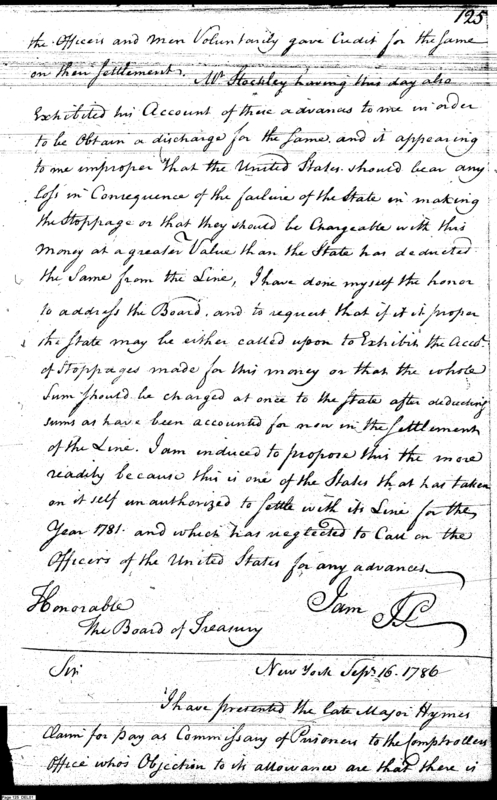 125
the Officers and men Voluntarily gave Credit for the Same
on their Settlement. Mr Stockley having this day also
Exhibited his Account of these advances to me in order
to be Obtain a discharge for the Same, and it appearing
to me improper that the United States should bear any
Loss in Consequence of the failure of the State in making
the Stoppage or that they should be Chargeable with this
Money at a greater Value than the State has deducted
the Same from the Line, I have done myself the honor
to address the Board, and to request that if it is proper
the State may be either called upon to Exhibit the Accot.
of Stoppages made for this money or that the whole
Sum should be charged at once to the State after deducting
sums as have been accounted for now in the Settlement
of the Line. I am induced to propose this the more
readily because this is one of the States that has taken
on it self unauthorized to Settle with its Line for the
Year 1781. and which has neglected to Call on the
Officers of the United States for any advances
Honorable I am
The Board of Treasury
New York Sepr. 16. 1786
Sir
I have presented the late Major Hymes
Claim for pay as Commissary of Prisoners to the Comptrollers
Office who's Objection to its allowance are that there is